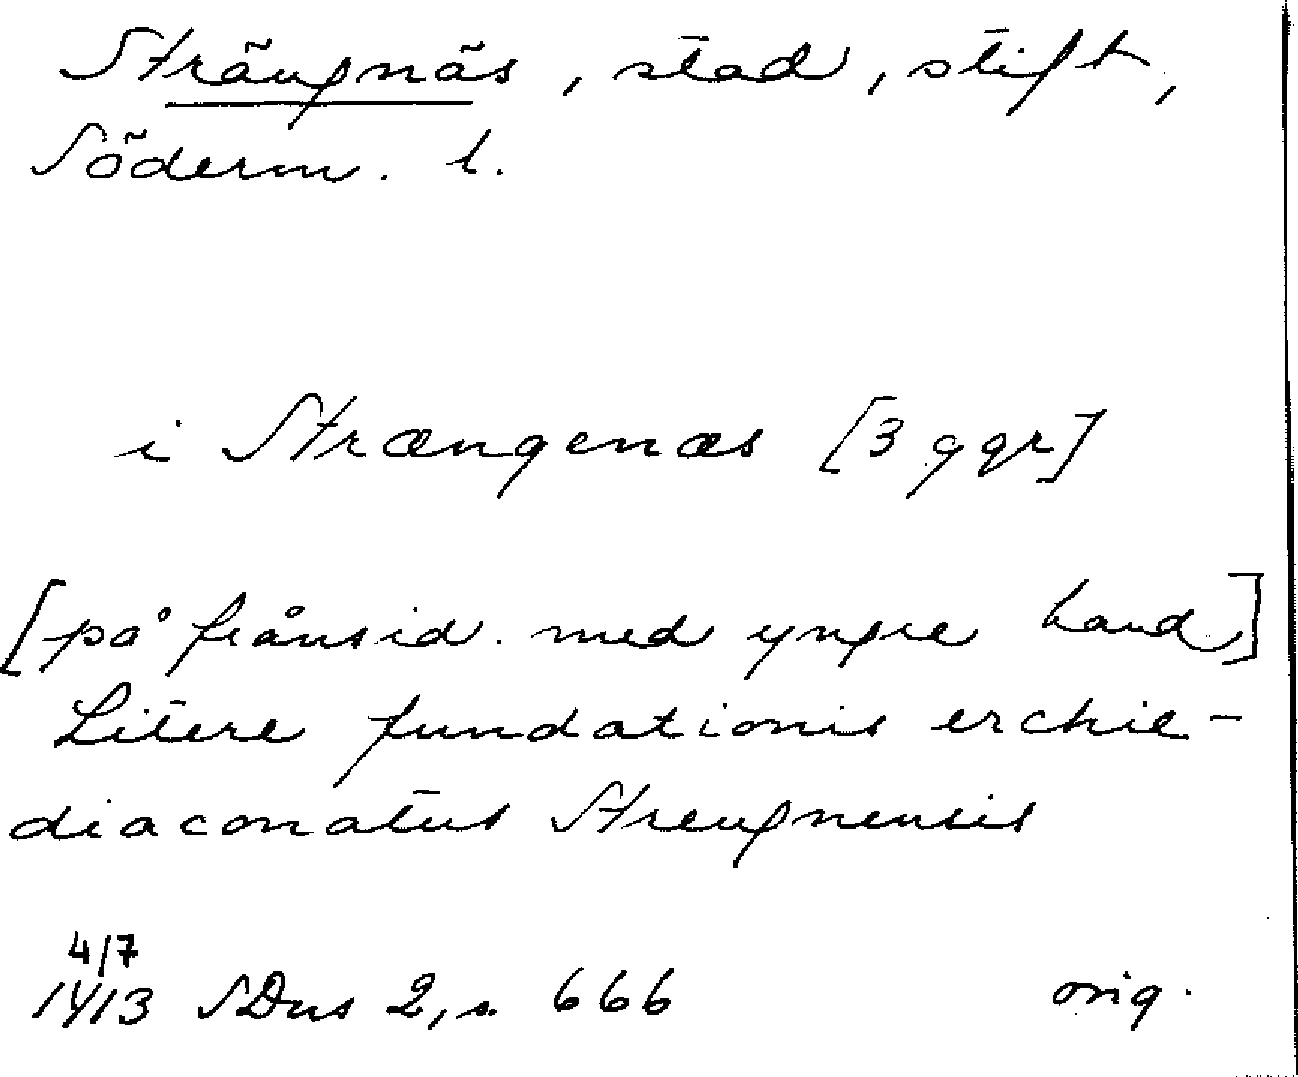 Strängnäs, stad, stift,
Söderm. l.
i Strængenæs [3 ggr]
[på frånsid. med yngre hand]
Litere fundationis erchie-
diaconatus Strengnensis
4/7
1413 SDns 2, s. 666 orig.